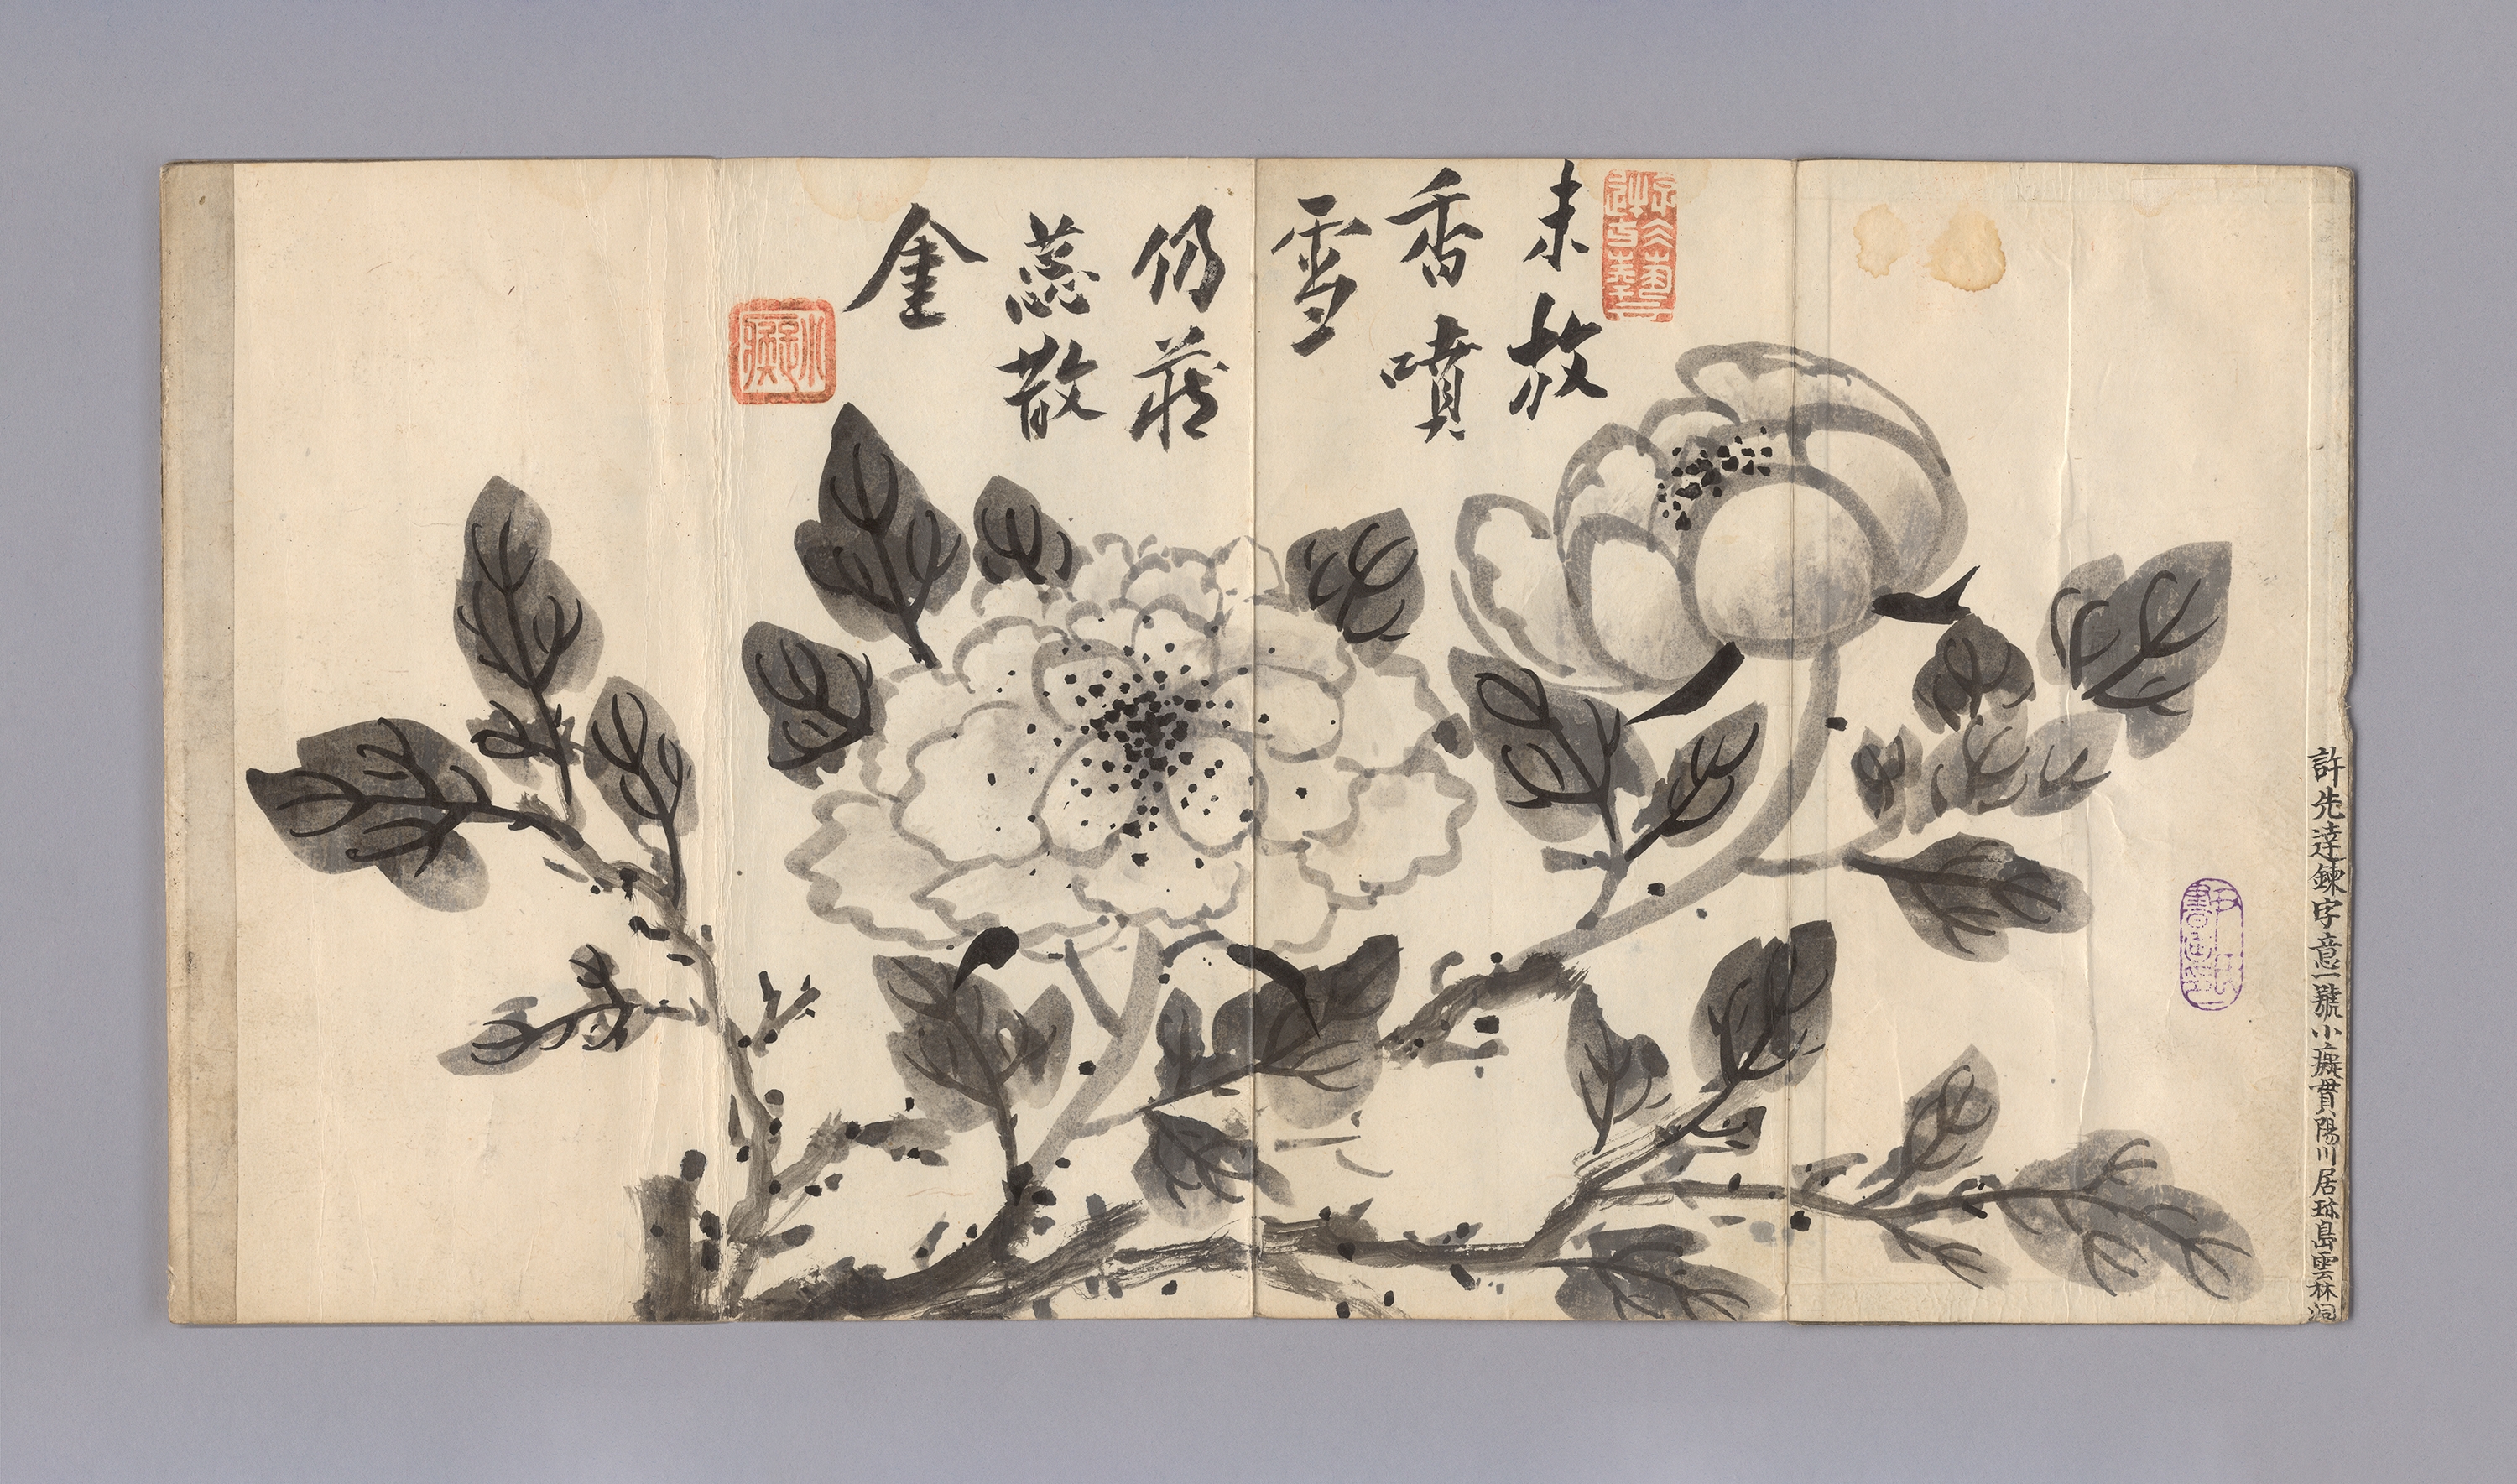 許先達鍊字意一號小癡貫陽川居珎島雲林洞
未放
香噴
雪
仍藏
蕊散
金